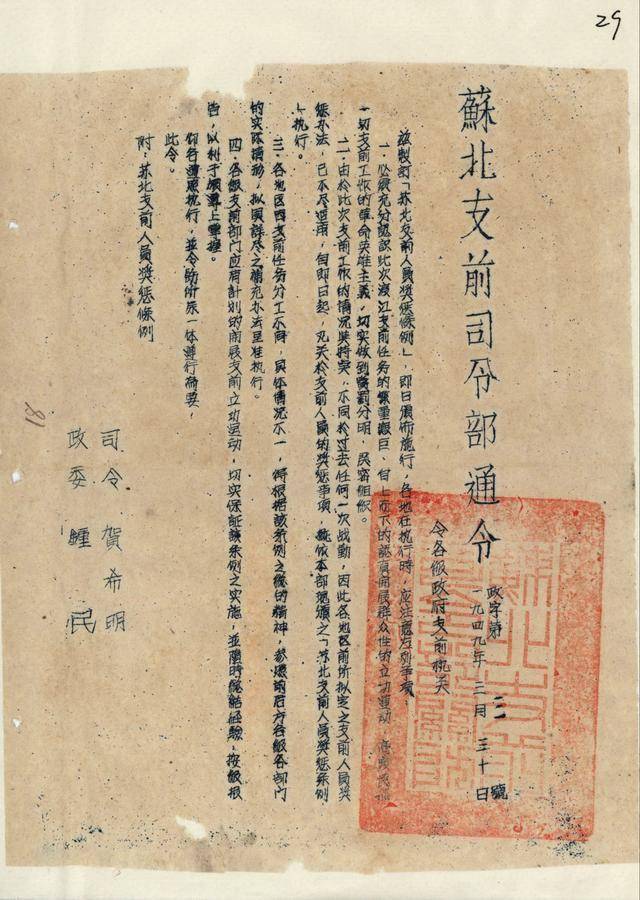 29
蘇北支前司令部通令
政字第 三 號
一九四九年三月三十日
令各級政府支前机关
兹製訂「苏北支前人員奖惩條例」，即日頒佈施行，各地在执行時，应注意左列事項：
一．必須充分認識此次渡江支前任务的繁重艱巨，自上而下的認真開展群众性的立功運动，
一切支前工作的革命英雄主義，切实做到賞罰分明，
二．由於此次支前工作的情况特殊，不同於过去任何一次战勤，因此各地区前所拟定之支前人員奖
惩办法，已不尽适用，自即日起，凡关於支前人員的奖惩事項，統依本部現頒之「苏北支前人員奖惩条例
」执行。
三．各地区因支前任务分工不同，具体情况不一，得根据該条例之總的精神，参照前后方各級各部門
的实际情形，拟具詳尽之補充办法呈准执行。
四．各級支前部門应有計划的開展支前立功运动，切实保証該条例之实施，並隨時總結经驗，按級报
告，以利于領導上掌握。
仰各遵照执行，並令飭所屬一体遵行為要，
此令。
附：苏北支前人員奖惩條例
司令 賀希明
政委 鍾民
18